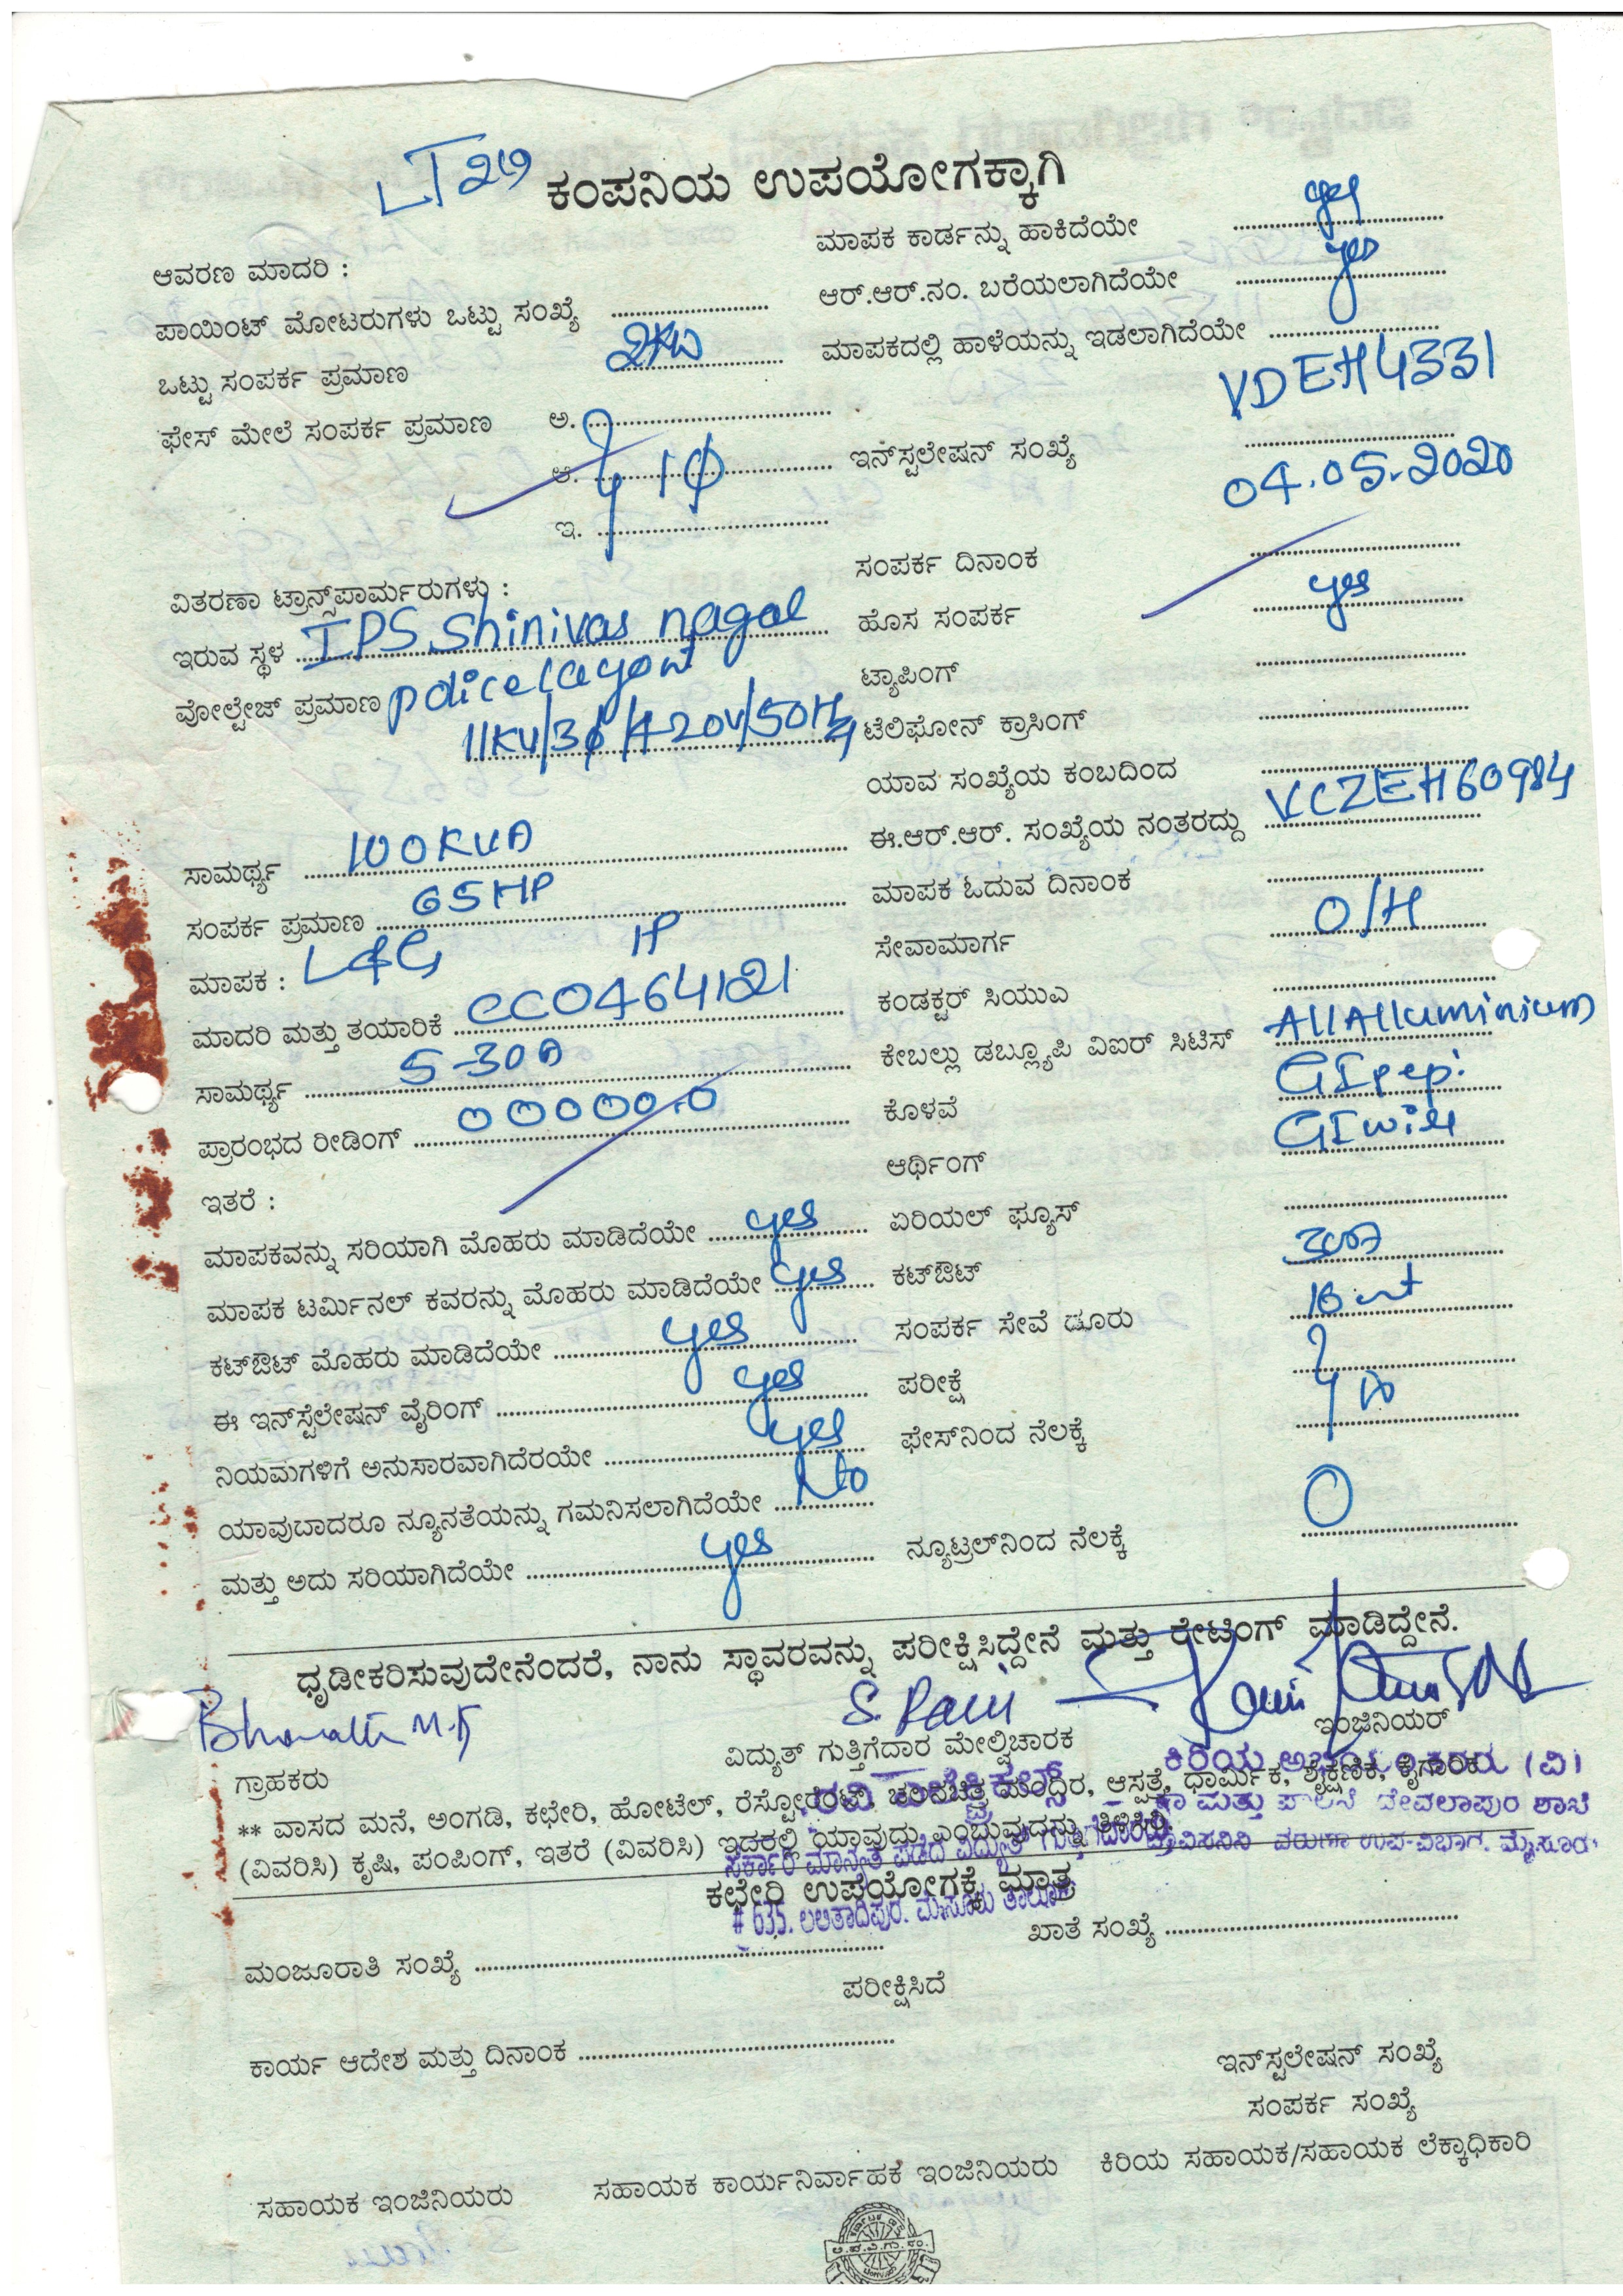 LT2a
ಕಂಪನಿಯ ಉಪಯೋಗಕ್ಕಾಗಿ
ಆವರಣ ಮಾದರಿ :
ಮಾಪಕ ಕಾರ್ಡನ್ನು ಹಾಕಿದೆಯೇ yes
ಪಾಯಿಂಟ್ ಮೋಟರುಗಳು ಒಟ್ಟು ಸಂಖ್ಯೆ
ಆರ್.ಆರ್.ನಂ. ಬರೆಯಲಾಗಿದೆಯೇ yes
ಒಟ್ಟು ಸಂಪರ್ಕ ಪ್ರಮಾಣ 2KW
ಮಾಪಕದಲ್ಲಿ ಹಾಳೆಯನ್ನು ಇಡಲಾಗಿದೆಯೇ
ಫೇಸ್ ಮೇಲೆ ಸಂಪರ್ಕ ಪ್ರಮಾಣ ಅ.
ಆ. 1ϕ
ಇ.
ಇನ್‌ಸ್ಟಲೇಷನ್ ಸಂಖ್ಯೆ VDEH4331
04.05.2020
ಸಂಪರ್ಕ ದಿನಾಂಕ
ವಿತರಣಾ ಟ್ರಾನ್ಸ್‌ಪಾರ್ಮರುಗಳು :
ಹೊಸ ಸಂಪರ್ಕ yes
ಇರುವ ಸ್ಥಳ IPS Shinivas nagar
ಟ್ಯಾಪಿಂಗ್
ವೋಲ್ಟೇಜ್ ಪ್ರಮಾಣ police layout
11KV/3ϕ/420V/50Hz
ಟೆಲಿಫೋನ್ ಕ್ರಾಸಿಂಗ್
ಯಾವ ಸಂಖ್ಯೆಯ ಕಂಬದಿಂದ
ಈ.ಆರ್.ಆರ್. ಸಂಖ್ಯೆಯ ನಂತರದ್ದು VCZEH60984
ಸಾಮರ್ಥ್ಯ 100KVA
ಮಾಪಕ ಓದುವ ದಿನಾಂಕ
ಸಂಪರ್ಕ ಪ್ರಮಾಣ 65HP
ಸೇವಾಮಾರ್ಗ O/H
ಮಾಪಕ : L&G
ಕಂಡಕ್ಟರ್ ಸಿಯುಎ
ಮಾದರಿ ಮತ್ತು ತಯಾರಿಕೆ CC0464121
ಕೇಬಲ್ಲು ಡಬ್ಲ್ಯೂಪಿ ವಿಐರ್ ಸಿಟಿಸ್ AllAlluminium
ಸಾಮರ್ಥ್ಯ 5-30A
ಕೊಳವೆ GIpep.
ಪ್ರಾರಂಭದ ರೀಡಿಂಗ್ 00000.0
ಆರ್ಥಿಂಗ್ GI wire
ಇತರೆ :
ಮಾಪಕವನ್ನು ಸರಿಯಾಗಿ ಮೊಹರು ಮಾಡಿದೆಯೇ yes
ಏರಿಯಲ್ ಫ್ಯೂಸ್
ಮಾಪಕ ಟರ್ಮಿನಲ್ ಕವರನ್ನು ಮೊಹರು ಮಾಡಿದೆಯೇ yes
ಕಟ್‌ಔಟ್ 30A
ಕಟ್‌ಔಟ್ ಮೊಹರು ಮಾಡಿದೆಯೇ yes
ಸಂಪರ್ಕ ಸೇವೆ ಡೂರು
ಈ ಇನ್‌ಸ್ಟೆಲೇಷನ್ ವೈರಿಂಗ್ yes
ಪರೀಕ್ಷೆ
ನಿಯಮಗಳಿಗೆ ಅನುಸಾರವಾಗಿದೆರಯೇ yes
ಫೇಸ್‌ನಿಂದ ನೆಲಕ್ಕೆ
ಯಾವುಬಾದರೂ ನ್ಯೂನತೆಯನ್ನು ಗಮನಿಸಲಾಗಿದೆಯೇ No
ಮತ್ತು ಅದು ಸರಿಯಾಗಿದೆಯೇ yes
ನ್ಯೂಟ್ರಲ್‌ನಿಂದ ನೆಲಕ್ಕೆ 0
ಧೃಡೀಕರಿಸುವುದೇನೆಂದರೆ, ನಾನು ಸ್ಥಾವರವನ್ನು ಪರೀಕ್ಷಿಸಿದ್ದೇನೆ ಮತ್ತು ರೇಟಿಂಗ್ ಮಾಡಿದ್ದೇನೆ.
S. Ravi
ಗ್ರಾಹಕರು
ವಿದ್ಯುತ್ ಗುತ್ತಿಗೆದಾರ ಮೇಲ್ವಿಚಾರಕ
ಇಂಜಿನಿಯರ್
** ವಾಸದ ಮನೆ, ಅಂಗಡಿ, ಕಛೇರಿ, ಹೋಟೆಲ್, ರೆಸ್ಟೋರೆಂಟ್, ಚಲನಚಿತ್ರ ಮಂದಿರ, ಆಸ್ಪತ್ರೆ, ಧಾರ್ಮಿಕ, ಶೈಕ್ಷಣಿಕ, ಕೈಗಾರಿಕ
(ವಿವರಿಸಿ) ಕೃಷಿ, ಪಂಪಿಂಗ್, ಇತರೆ (ವಿವರಿಸಿ) ಇದರಲ್ಲಿ ಯಾವುದು ಎಂಬುವುದನ್ನು ತಿಳಿಸಿರಿ
ಸರ್ಕಾರಿ ಮಾನ್ಯತೆ ಪಡೆದ ವಿದ್ಯುತ್ ಗುತ್ತಿಗೆದಾರರು
ಕಛೇರಿ ಉಪಯೋಗಕ್ಕೆ ಮಾತ್ರ
# 635. ಲಲಿತಾದ್ರಿಪುರ. ಮೈಸೂರು ತಾಲ್ಲೂಕು
ಮಂಜೂರಾತಿ ಸಂಖ್ಯೆ
ಖಾತೆ ಸಂಖ್ಯೆ
ಪರೀಕ್ಷಿಸಿದೆ
ಕಾರ್ಯ ಆದೇಶ ಮತ್ತು ದಿನಾಂಕ
ಇನ್‌ಸ್ಟಲೇಷನ್ ಸಂಖ್ಯೆ
ಸಂಪರ್ಕ ಸಂಖ್ಯೆ
ಸಹಾಯಕ ಇಂಜಿನಿಯರು
ಸಹಾಯಕ ಕಾರ್ಯನಿರ್ವಾಹಕ ಇಂಜಿನಿಯರು
ಕಿರಿಯ ಸಹಾಯಕ/ಸಹಾಯಕ ಲೆಕ್ಕಾಧಿಕಾರಿ